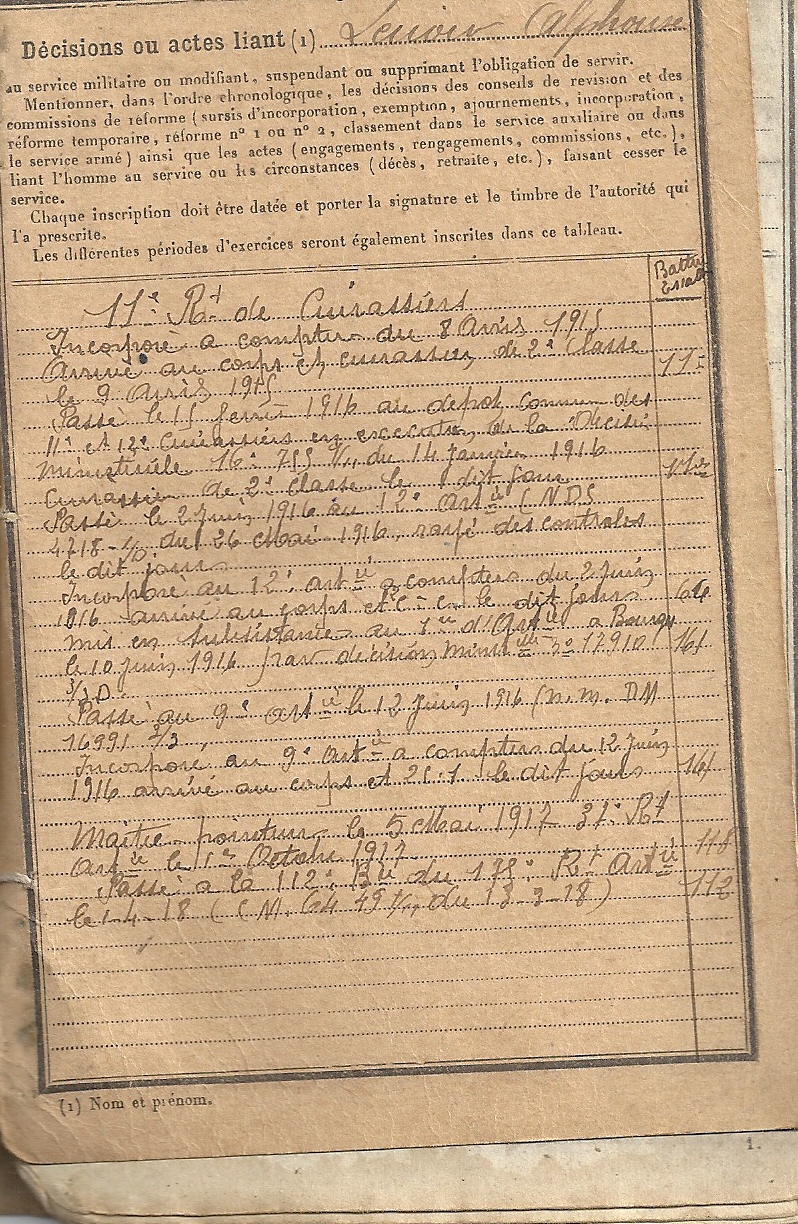 Décisions ou actes liant (1) Alphonse
au service militaire ou modifiant, suspendant ou supprimant l'obligation de servir.
Mentionner, dans l'ordre chronologique, les décisions des conseils de revision et des
commissions de réforme (sursis d'incorporation, exemption, ajournements, incorporation,
réforme temporaire, réforme n° 1 ou n° 2, classement dans le service auxiliaire ou dans
le service armé) ainsi que les actes (engagements, rengagements, commissions, etc.),
liant l'homme au service ou les circonstances (décès, retraite, etc.), faisant cesser le
service.
Chaque inscription doit être datée et porter la signature et le timbre de l'autorité qui
l'a prescrite.
Les différentes périodes d'exercices seront également inscrites dans ce tableau.
11e Rt de Cuirassiers
Incorporé à compter du 8 Avril 1915
Arrivé au corps et cuirassier de 2e Classe
le 9 Avril 1915
Passé le 15 février 1916 au dépôt commun des
11e et 12e Cuirassiers en execution de la Décision
ministérielle 755 du 14 Janvier 1916
Cuirassier de 2e Classe le dit jour
Passé le 2 Juin 1916 au 12e Artie (NDS
4718 du 26 Mai 1916, rayé des controles
le dit jour
Incorporé au 12e Artie à compter du 2 Juin
1916 arrivé au corps et le dit jour 66
mis en subsistance au 1er d'Artie à Bourges
le 10 Juin 1916 par décision minielle no 17910 161
Passé au 9e Artie le 12 Juin 1916 (n.m. DM
16991 2/3
Incorporé au 9e Artie à compter du 12 Juin
1916 arrivé au corps et 2C.1 le dit jour 161
Maitre pointeur le 5 Mai 1917 37e Rt
Artie le 1er Octobre 1917 118
Passé à la 112e Bie du 175e Rt Artie
le 1-4-18 ( du 13-3-18) 112
(1) Nom et prénom.
1.